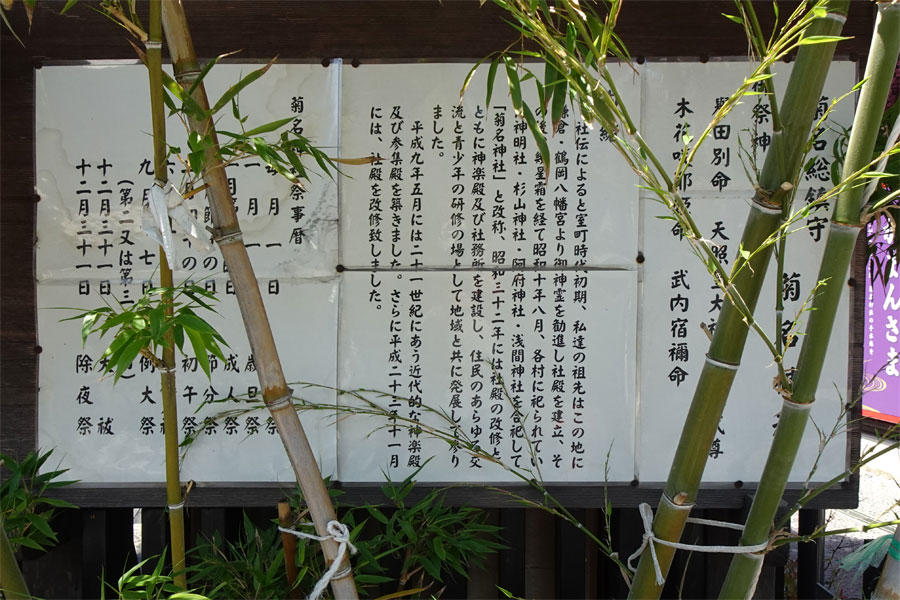 菊名総鎮守　菊名
御祭神
田別命　天照　大　尊
木花咲耶　命　武内宿禰命
社伝によると室町時代初期、私達の祖先はこの地に
鎌倉・鶴岡八幡宮より御神霊を勧進し社殿を建立、そ
の後、幾星霜を経て昭和十年八月、各村に祀られてい
神明社・杉山神社・阿府神社・浅間神社を合祀して
「菊名神社」と改称、昭和三十一年には社殿の改修と
ともに神楽殿及び社務所を建設し、住民のあらゆる交
流と青少年の研修の場として地域と共に発展して参り
ました。
平成九年五月には二十一世紀にあう近代的な神楽殿
及び参集殿を築きました。さらに平成二十三年十一月
には、社殿を改修致しました。
菊名　祭事暦
一月　一日　歳旦祭
一月　日　成人祭
節　の日　節分祭
の日　初午祭
九月　七日　例大祭
（第二又は第三　）
十二月三十一日　大祓
十二月三十一日　除夜祭
んさま